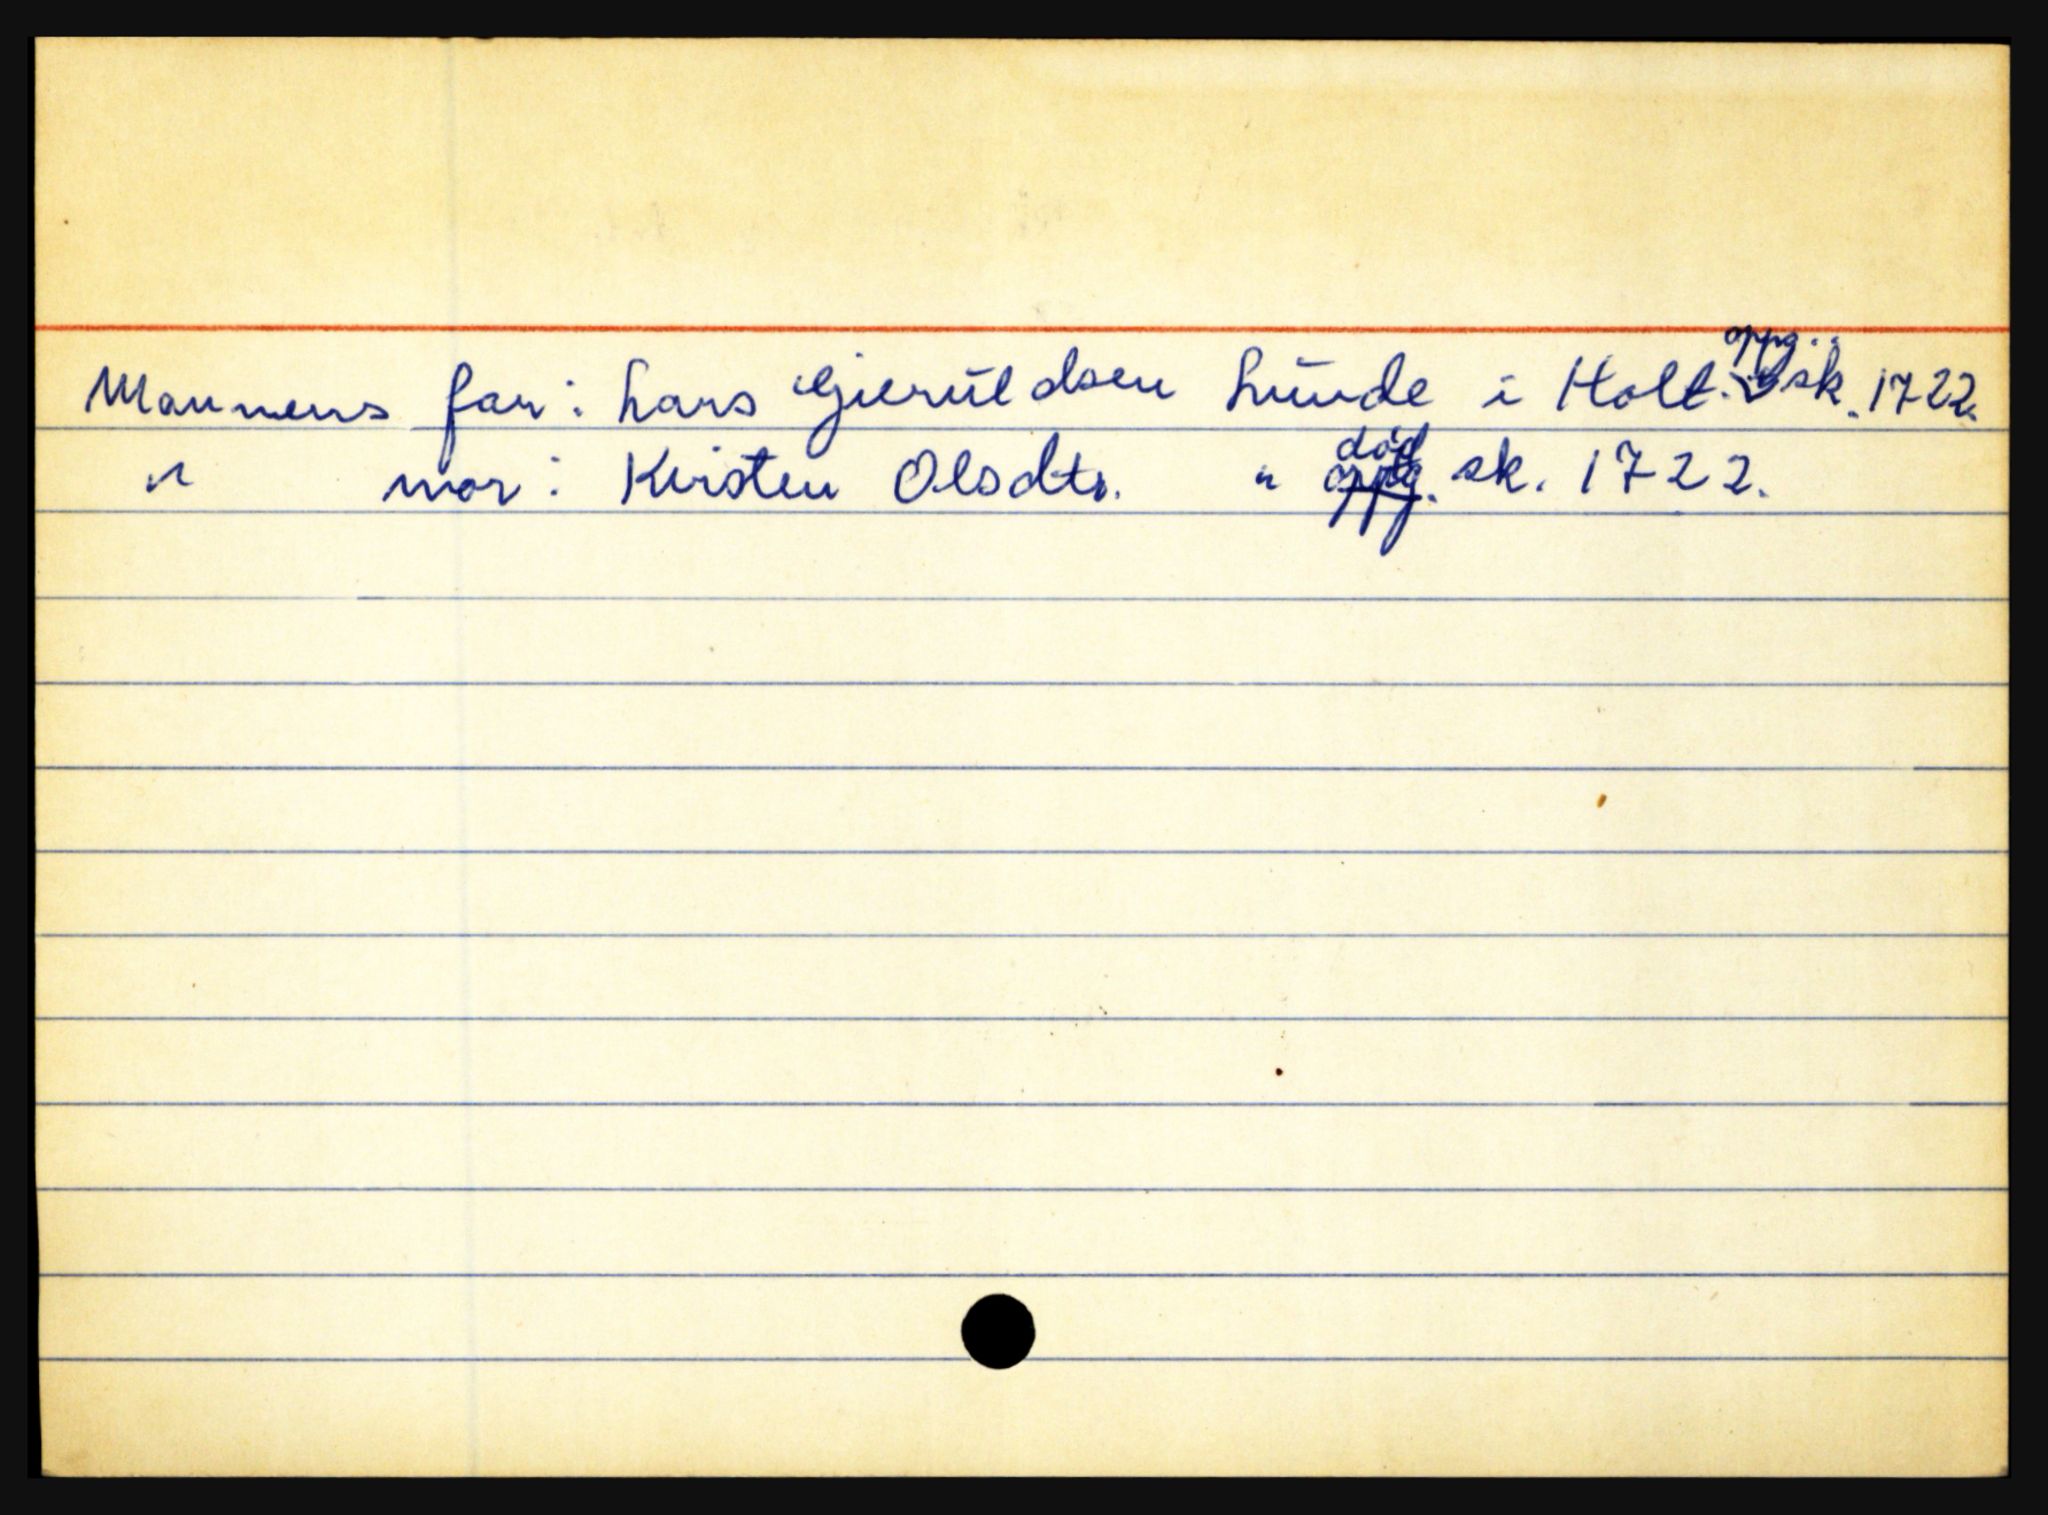 Mannens far: Lars Gjeruldsen Lunde i Holt. oppg. sk. 1722.
" mor: Kirsten Olsdtr. " død sk. 1722.